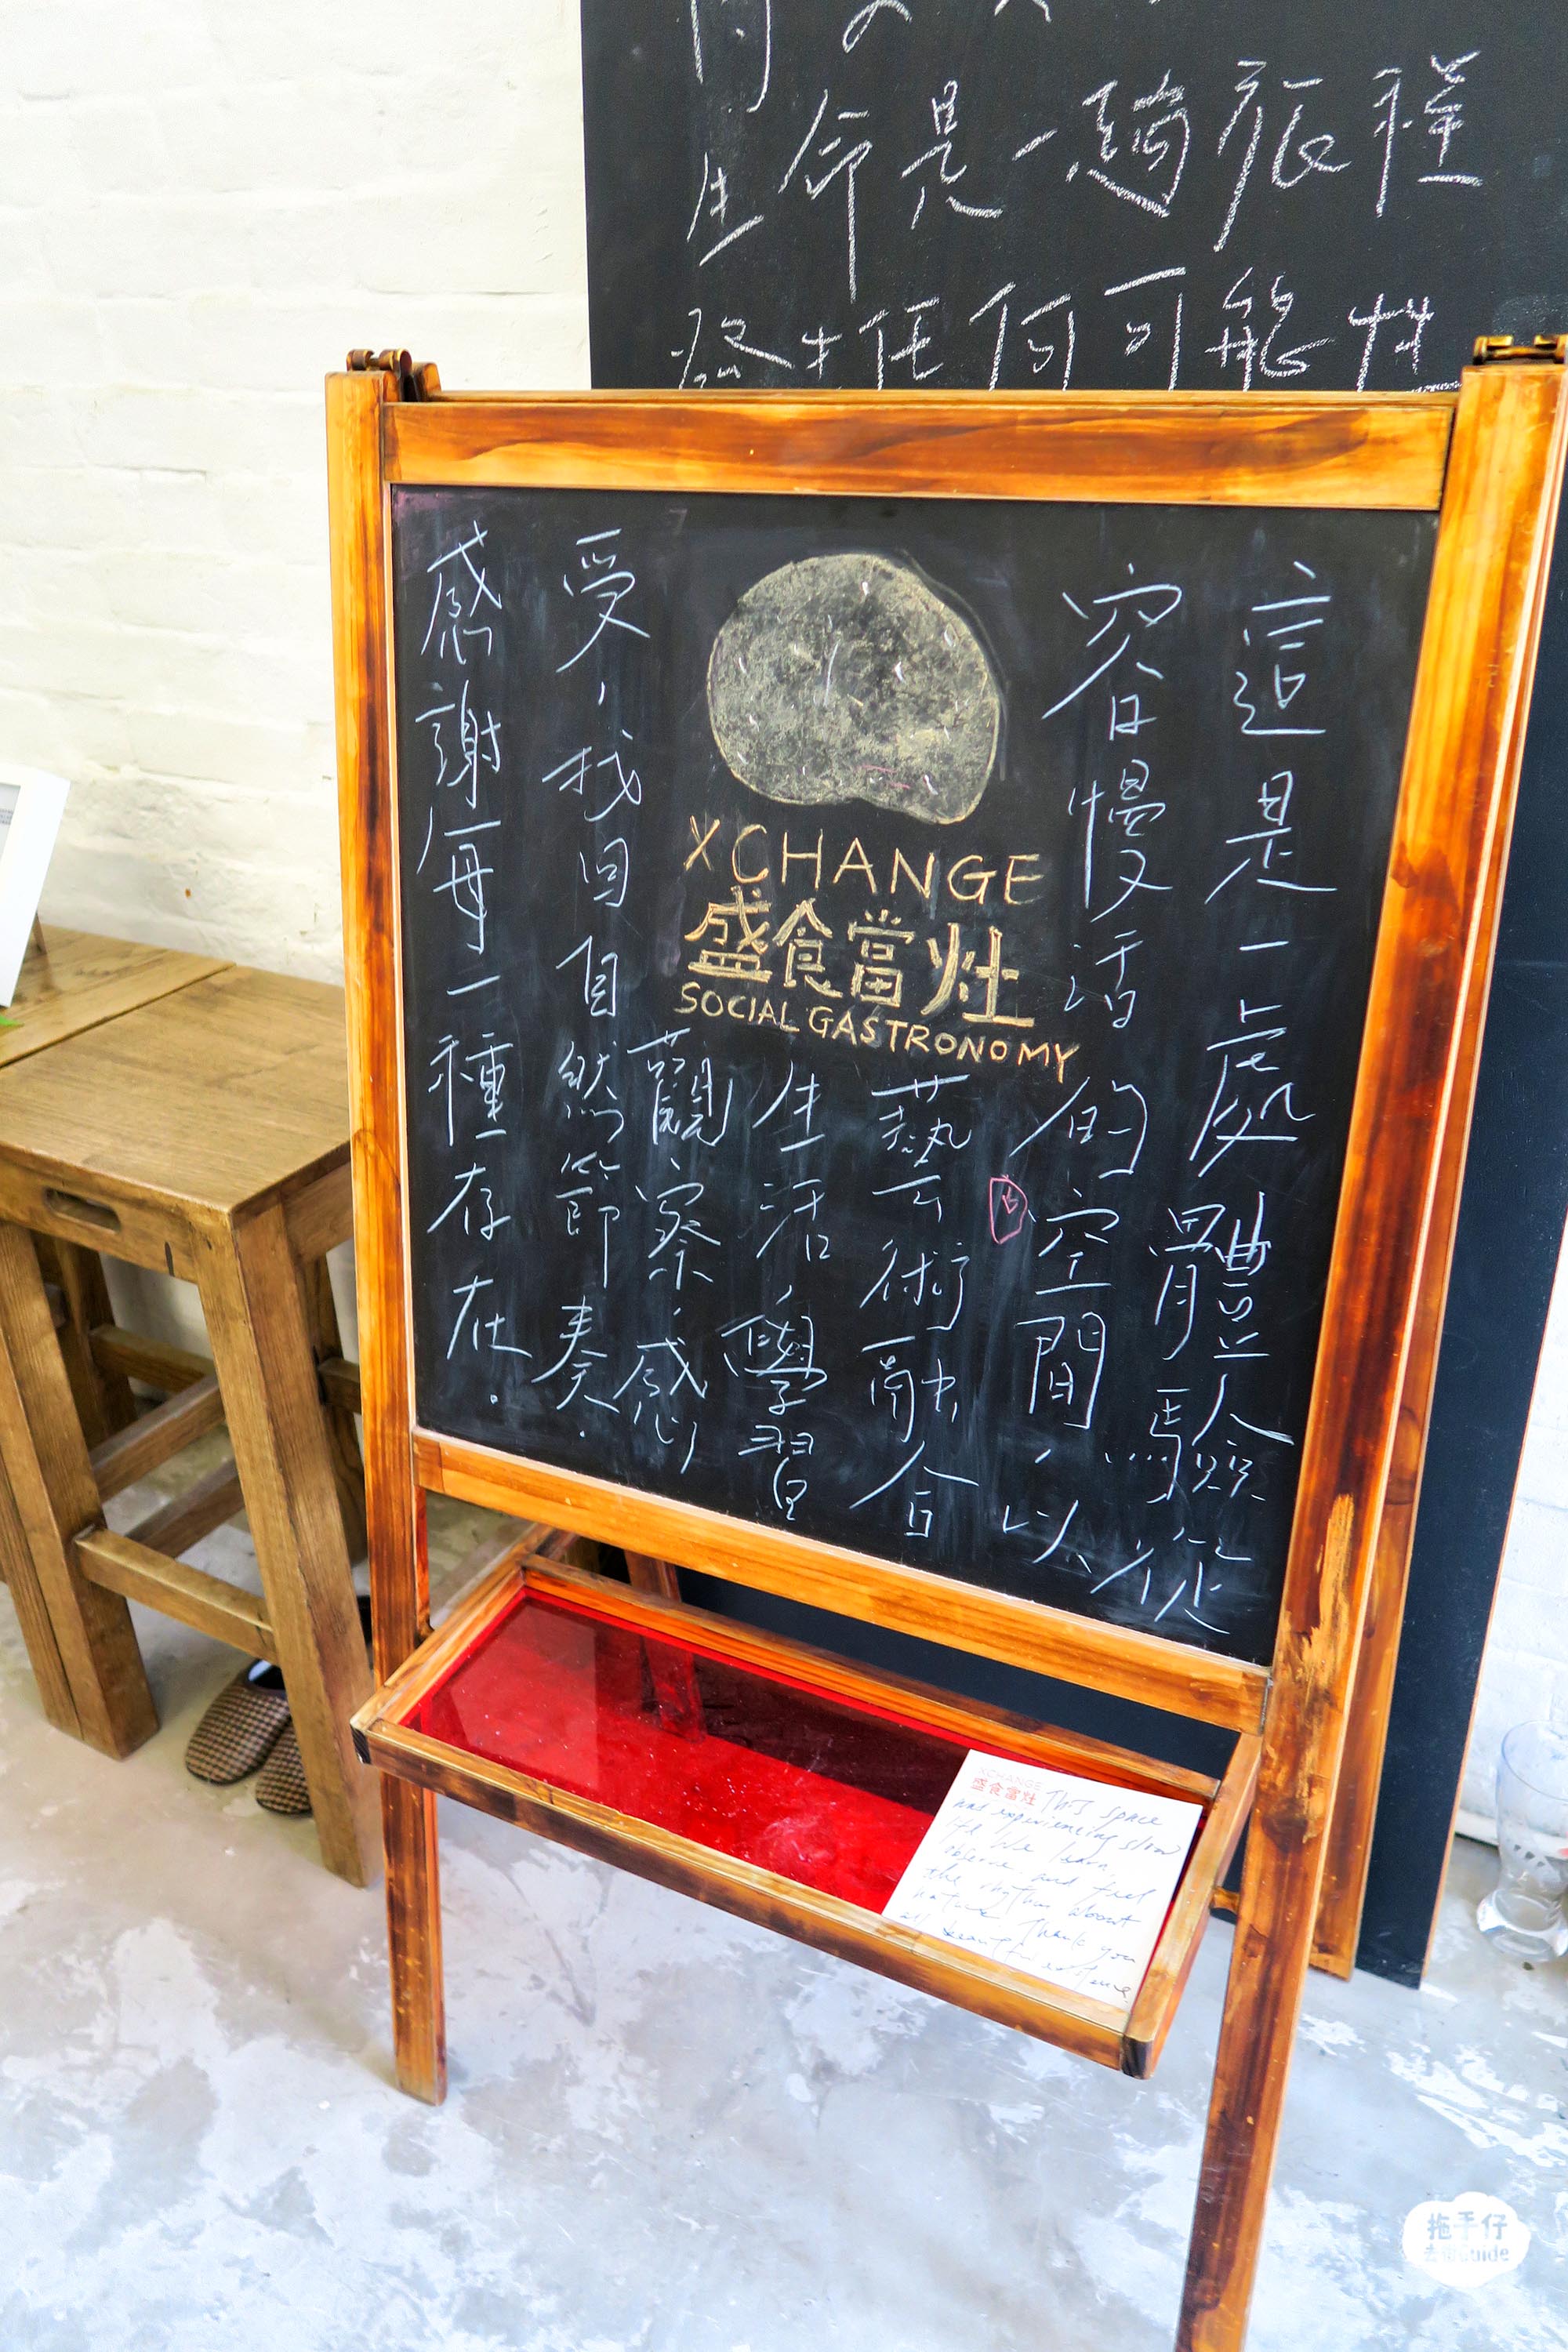 生命是一趟旅程
發生任何可能性
這是一處體驗從
容慢活的空間，以
藝術融合
生活，學習
觀察，感
受，找回自然節奏．
感謝每一種存在．
XCHANGE
盛食當灶
SOCIAL GASTRONOMY
XCHANGE
盛食當灶 This space
and experiencing slow
life We learn,
observe and feel
the rhythm about
nature Thank you
all beautiful existence
拖手仔
去街Guide